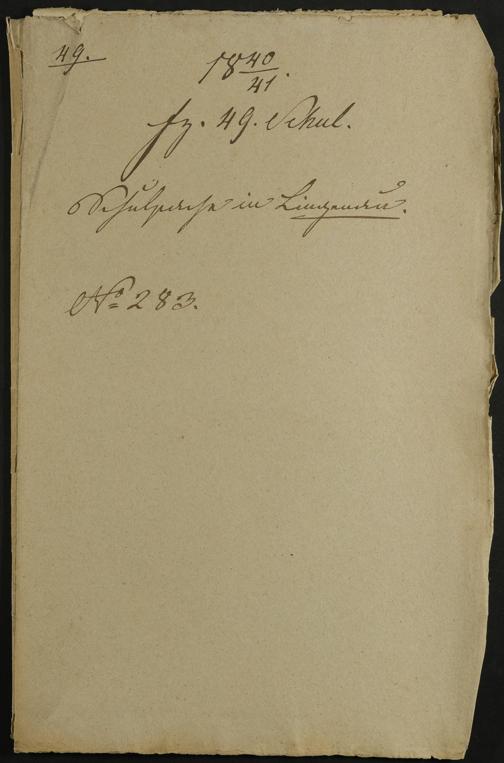 49.
18 40/41.
fz. 49. Schul.
Schulsache in Lingenau.
No 283.